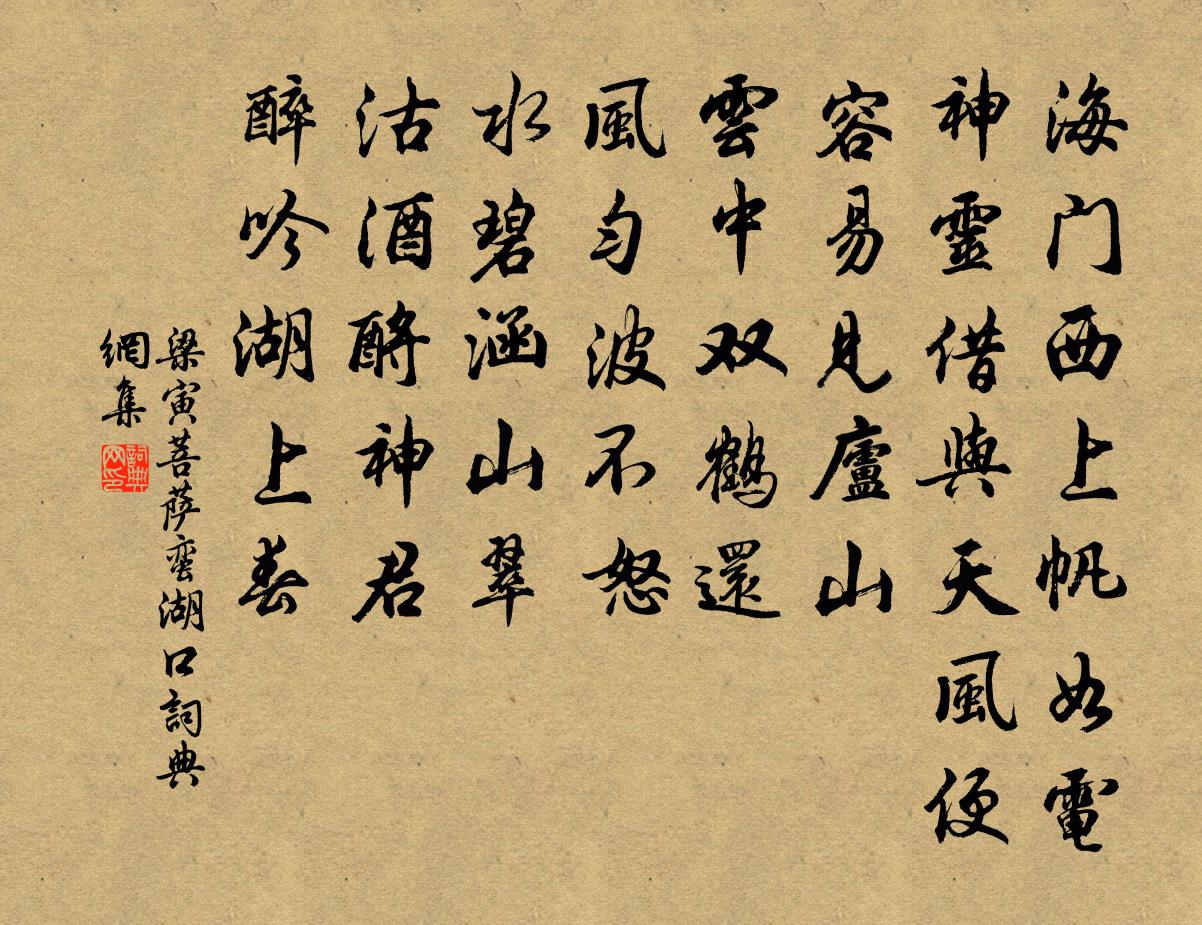 海门西上帆如電
神靈借與天風便
容易見廬山
雲中双鶴還
風匀波不怒
水碧涵山翠
沽酒酹神君
醉吟湖上春
梁寅菩萨蛮湖口詞典
網集
詞典
网印